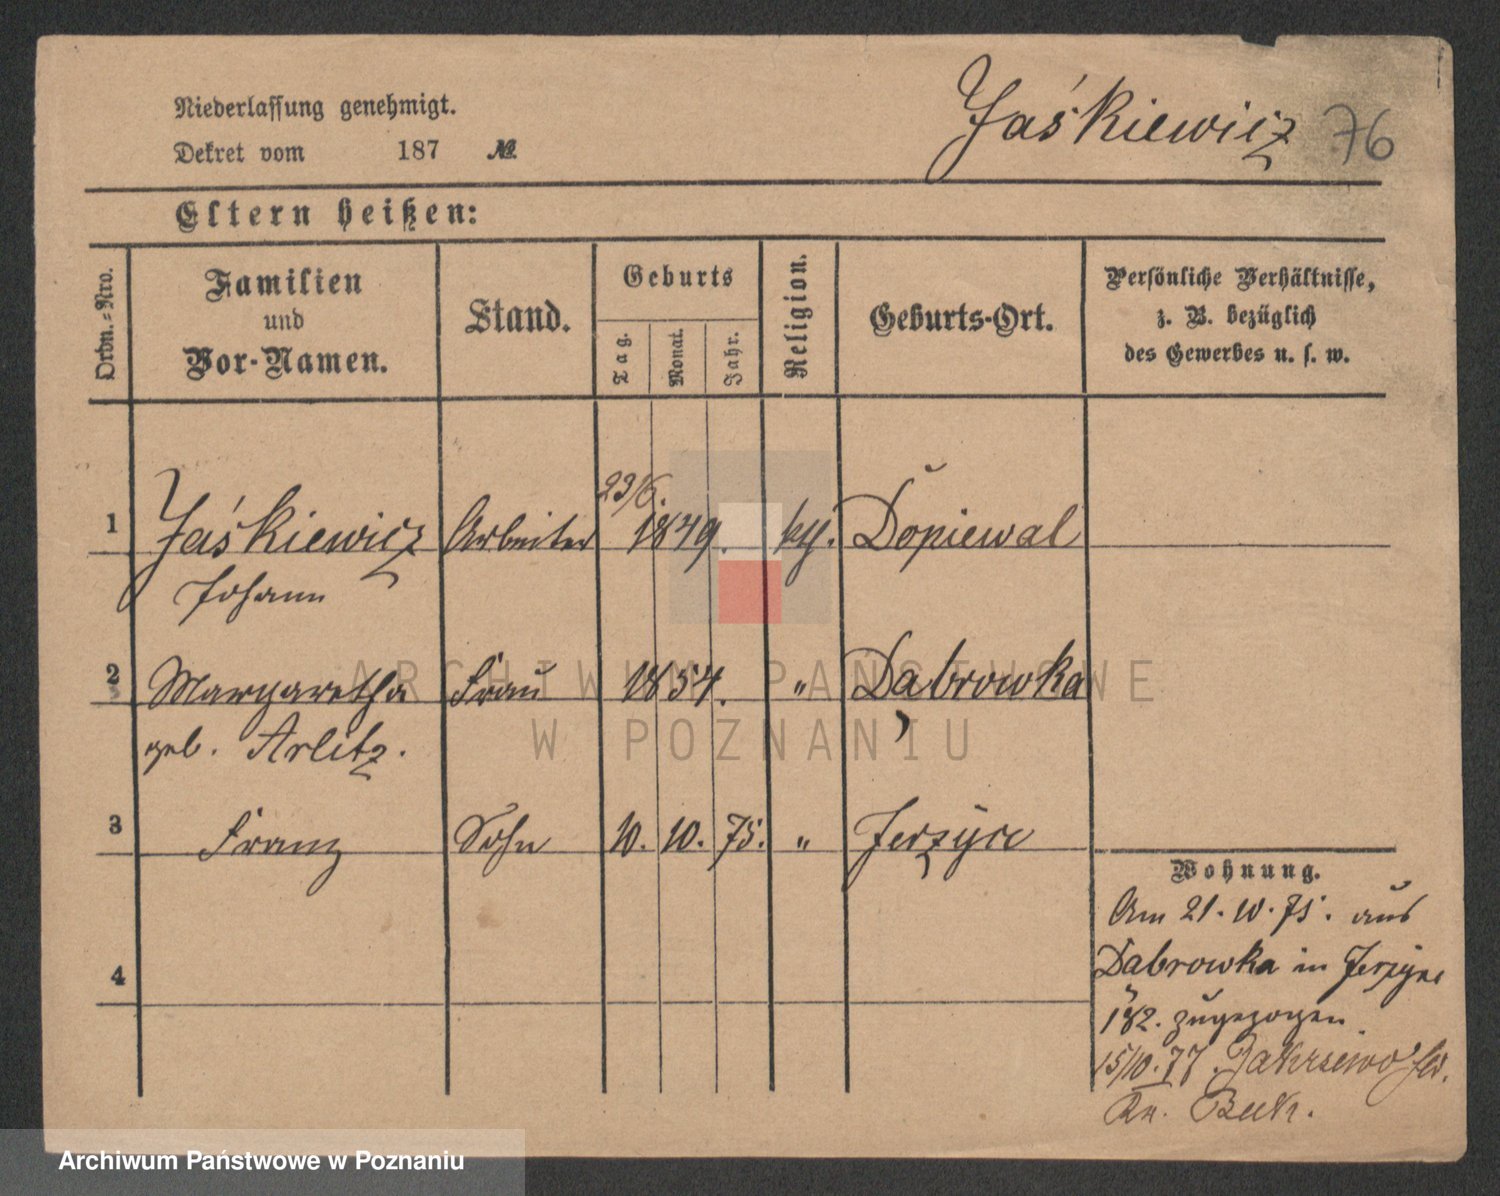 Niederlassung genehmigt.
Jaśkiewicz 76
Dekret vom 187 №
Eltern heißen:
Ordn.-Nro.
Familien
und
Vor-Namen.
Stand.
Geburts
Tag.
Monat.
Jahr.
Religion.
Geburts-Ort.
Persönliche Verhältnisse,
z. B. bezüglich
des Gewerbes u. s. w.
1 Jaśkiewicz Arbeiter 23/6. 1849. kth. Dopiewa
Johann
2 Margaretha Frau 1854. " Dąbrowka
geb. Arlitz.
3 Franz Sohn 10. 10. 75. " Jerzyce
4
Wohnung.
Am 21. 10. 75. aus
Dąbrowka in Jerzyce
182. zugezogen.
15/10. 77. Zakrzewo
Kr. Buk.
ARCHIWUM PAŃSTWOWE
W POZNANIU
Archiwum Państwowe w Poznaniu